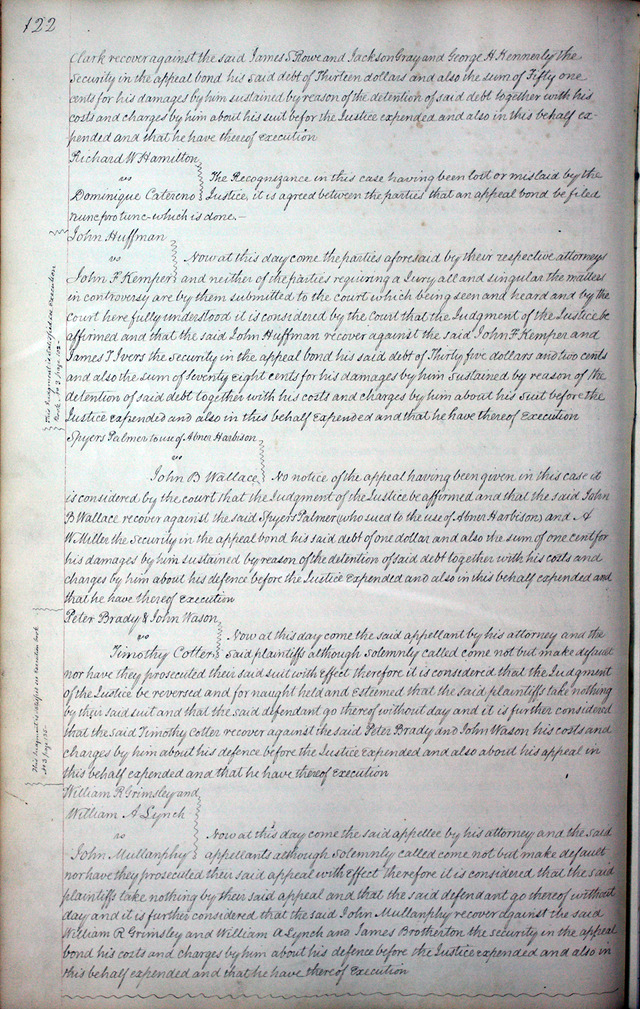 122
Clark recover against the said James S Rowe and Jackson Gray and George H Kennerly the
Security in the appeal bond his said debt of Thirteen dollars and also the sum of Fifty one
cents for his damages by him sustained by reason of the detention of said debt together with his
costs and charges by him about his suit befor the Justice expended and also in this behalf ex-
pended and that he have thereof execution
Richard W Hamilton
vs The Recognizance in this case having been lost or mislaid by the
Dominique Catereno Justice, it is agreed between the parties that an appeal bond be filed
nunc pro tunc - which is done. -
John Huffman
vs Now at this day come the parties aforesaid by their respective attorneys
John F Kemper and neither of the parties requiring a Jury all and singular the matters
in controversy are by them submitted to the court which being seen and heard and by the
court here fully understood it is considered by the Court that the Judgment of the Justice be
affirmed and that the said John Huffman recover against the said John F Kemper and
James T Ivers the security in the appeal bond his said debt of Thirty five dollars and two cents
and also the sum of seventy eight cents for his damages by him Sustained by reason of the
detention of said debt together with his costs and charges by him about his Suit before the
Justice expended and also in this behalf expended and that he have thereof Execution
This Judgment is satisfied on execution
book No 2 page
Spyers Palmer to use of Abner Harbison
vs
John B Wallace No notice of the appeal having been given in this case it
is considered by the court that the Judgment of the Justice be affirmed and that the said John
B Wallace recover against the said Spyers Palmer (who sued to the use of Abner Harbison) and A
W Miller the Security in the appeal bond his said debt of one dollar and also the sum of one cent for
his damages by him sustained by reason of the detention of said debt together with his costs and
charges by him about his defence before the Justice expended and also in this behalf expended and
that he have thereof execution
Peter Brady & John Wason
vs Now at this day come the said appellant by his attorney and the
Timothy Cotter Said plaintiffs although solemnly called come not but make default
nor have they prosecuted their said suit with effect therefore it is considered that the Judgment
of the Justice be reversed and for naught held and Esteemed that the said plaintiffs take nothing
by their said suit and that the said defendant go thereof without day and it is further considered
that the said Timothy Cotter recover against the said Peter Brady and John Wason his costs and
charges by him about his defence before the Justice Expended and also about his appeal in
this behalf expended and that he have thereof execution
This Judgment is satisfied on execution book
No 2 page
William R Grimsley and
William A Lynch
vs Now at this day come the said appellee by his attorney and the said
John Mullanphy appellants although Solemnly called come not but make default
nor have they prosecuted their said appeal with effect Therefore it is considered that the said
plaintiffs take nothing by their said appeal and that the said defendant go thereof without
day and it is further considered that the said John Mullanphy recover against the said
William R Grimsley and William A Lynch and James Brotherton the security in the appeal
bond his costs and charges by him about his defence before the Justice expended and also in
this behalf expended and that he have thereof Execution